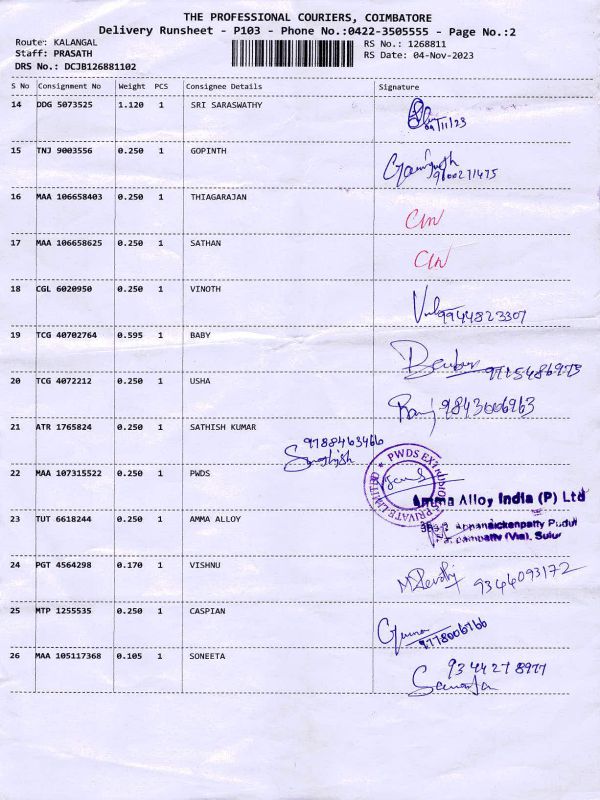 THE PROFESSIONAL COURIERS, COIMBATORE
Delivery Runsheet - P103 - Phone No.:0422-3505555 - Page No.:2
Route: KALANGAL RS No.: 1268811
Staff: PRASATH RS Date: 04-Nov-2023
DRS No.: DCJB126881102
S No Consignment No Weight PCS Consignee Details Signature
14 DDG 5073525 1.120 1 SRI SARASWATHY
15 TNJ 9003556 0.250 1 GOPINTH
9600271475
16 MAA 106658403 0.250 1 THIAGARAJAN
17 MAA 106658625 0.250 1 SATHAN
18 CGL 6020950 0.250 1 VINOTH
9944823307
19 TCG 40702764 0.595 1 BABY
20 TCG 4072212 0.250 1 USHA
9843006963
21 ATR 1765824 0.250 1 SATHISH KUMAR
9788463466
22 MAA 107315522 0.250 1 PWDS
PWDS EXTRUSIONS PRIVATE LIMITED
Amma Alloy India (P) Ltd
23 TUT 6618244 0.250 1 AMMA ALLOY
(Via), Sulur
24 PGT 4564298 0.170 1 VISHNU
9344093172
25 MTP 1255535 0.250 1 CASPIAN
26 MAA 105117368 0.105 1 SONEETA
9344278977